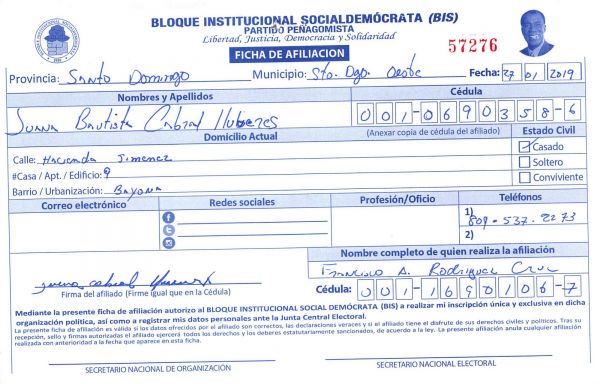 BLOQUE INSTITUCIONAL SOCIALDEMÓCRATA (BIS)
PARTIDO PEÑAGOMISTA
Libertad, Justicia, Democracia y Solidaridad
FICHA DE AFILIACION
57276
Provincia: Santo Domingo Municipio: Sto. Dgo. Oeste Fecha: 27/01/2019
Nombres y Apellidos Cédula
Juana Bautista Cabral Hubieres 001-0690358-6
Domicilio Actual (Anexar copia de cédula del afiliado) Estado Civil
Calle: Hacienda Jimenez Casado
#Casa / Apt. / Edificio: 9 Soltero
Barrio / Urbanización: Bayona Conviviente
Correo electrónico Redes sociales Profesión/Oficio Teléfonos
1) 809-537-2273
2)
Nombre completo de quien realiza la afiliación
Francisco A. Rodriguez Cruz
Juana Cabral
Firma del afiliado (Firme igual que en la Cédula) Cédula: 001-1690106-7
Mediante la presente ficha de afiliación autorizo al BLOQUE INSTITUCIONAL SOCIAL DEMÓCRATA (BIS) a realizar mi inscripción única y exclusiva en dicha
organización política, así como a registrar mis datos personales ante la Junta Central Electoral.
La presente ficha de afiliación es válida si los datos ofrecidos por el afiliado son correctos, las declaraciones veraces y si el afiliado tiene el disfrute de sus derechos civiles y políticos. Tras su
recepción, sello y firmas autorizadas el afiliado ejercerá todos los derechos y los deberes estatutariamente sancionados, de acuerdo a la ley. La presente afiliación anula cualquier afiliación
realizada con anterioridad a la fecha que aparece en esta ficha.
SECRETARIO NACIONAL DE ORGANIZACIÓN SECRETARIO NACIONAL ELECTORAL